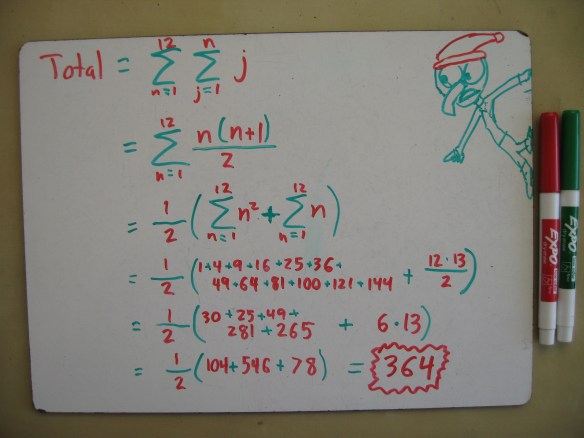 Total = 12∑n=1 n∑j=1 j
= 12∑n=1 n(n+1)/2
= 1/2 (12∑n=1 n² + 12∑n=1 n)
= 1/2 (1+4+9+16+25+36+
49+64+81+100+121+144 + 12·13/2)
= 1/2 (30+25+49+
281+265 + 6·13)
= 1/2 (104+546+78) = 364
EXPO
EXPO